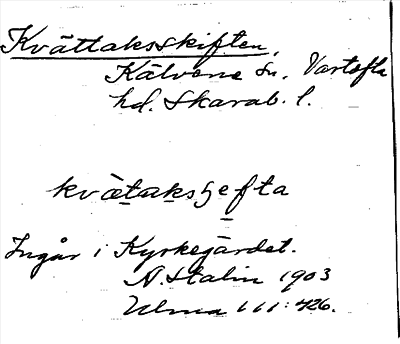 Kvättaksskiften,
Kälvene sn, Vartofta
hd. Skarab. l.
kvätaksʒefta
Ingår i Kyrkegärdet.
A. Stalin 1903
Ulma 111:426.